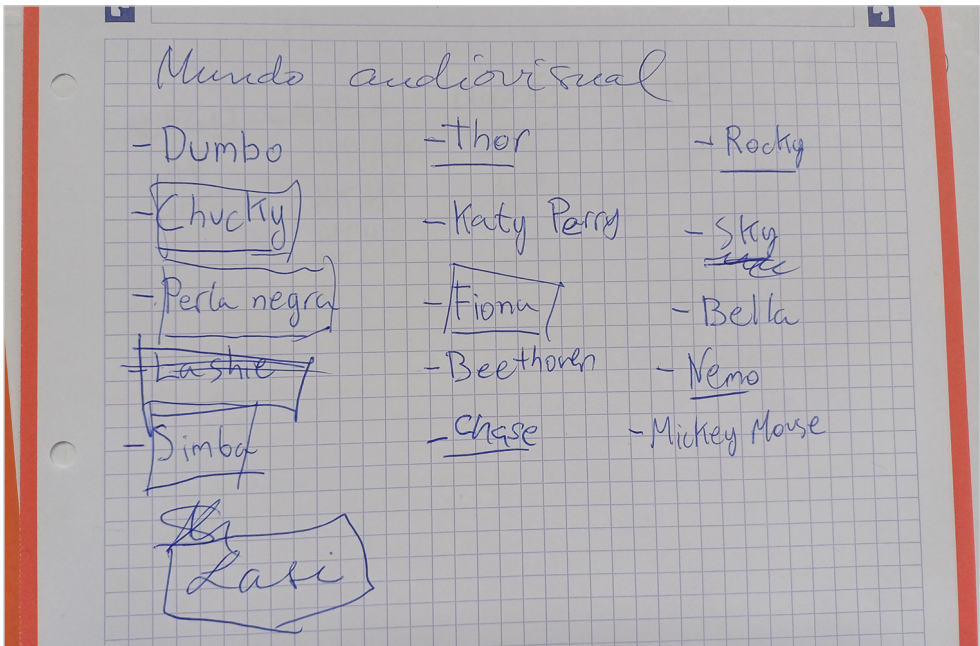 Mundo audiovisual
- Dumbo
- Chucky
- Perla negra
- Lashie
- Simba
- Thor
- Katy Perry
- Fiona
- Beethoven
- Chase
- Rocky
- Sky
- Bella
- Nemo
- Mickey Mouse
Lasi